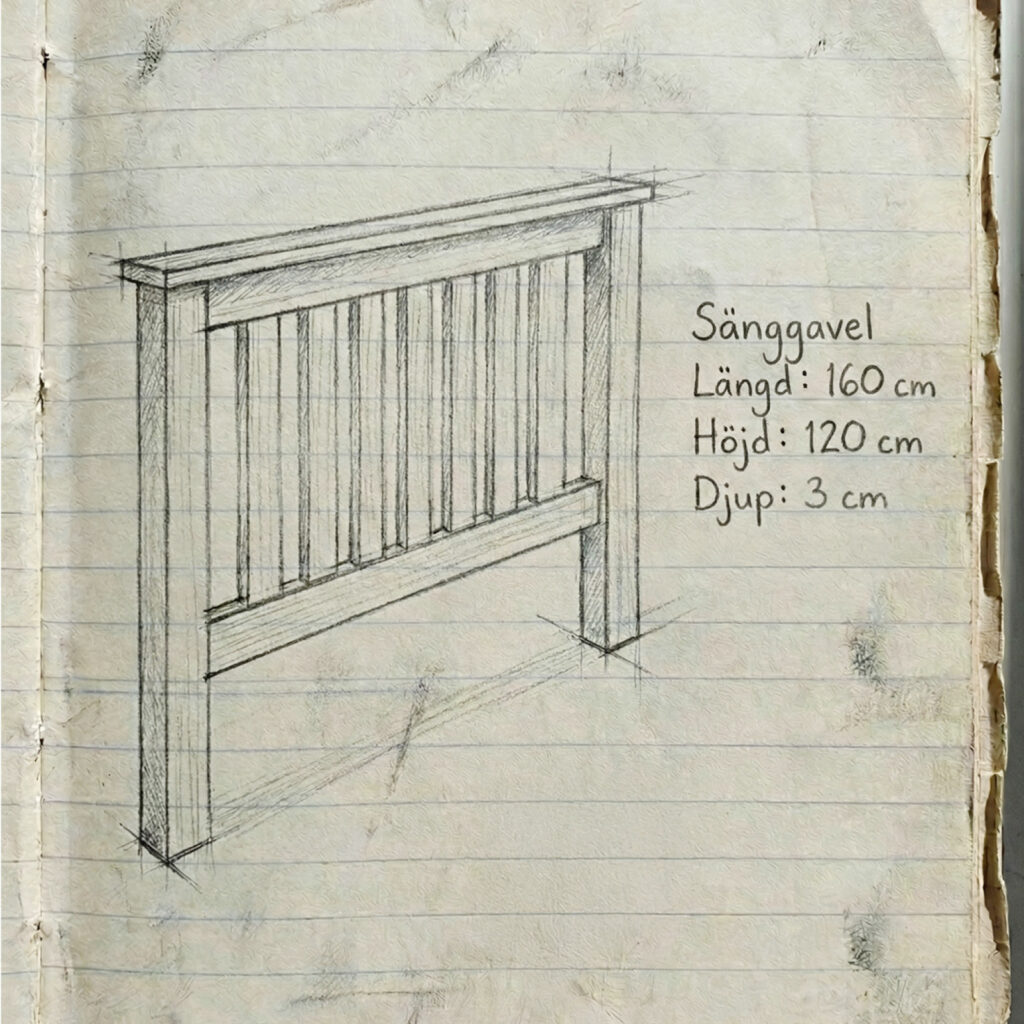 Sänggavel
Längd: 160 cm
Höjd: 120 cm
Djup: 3 cm